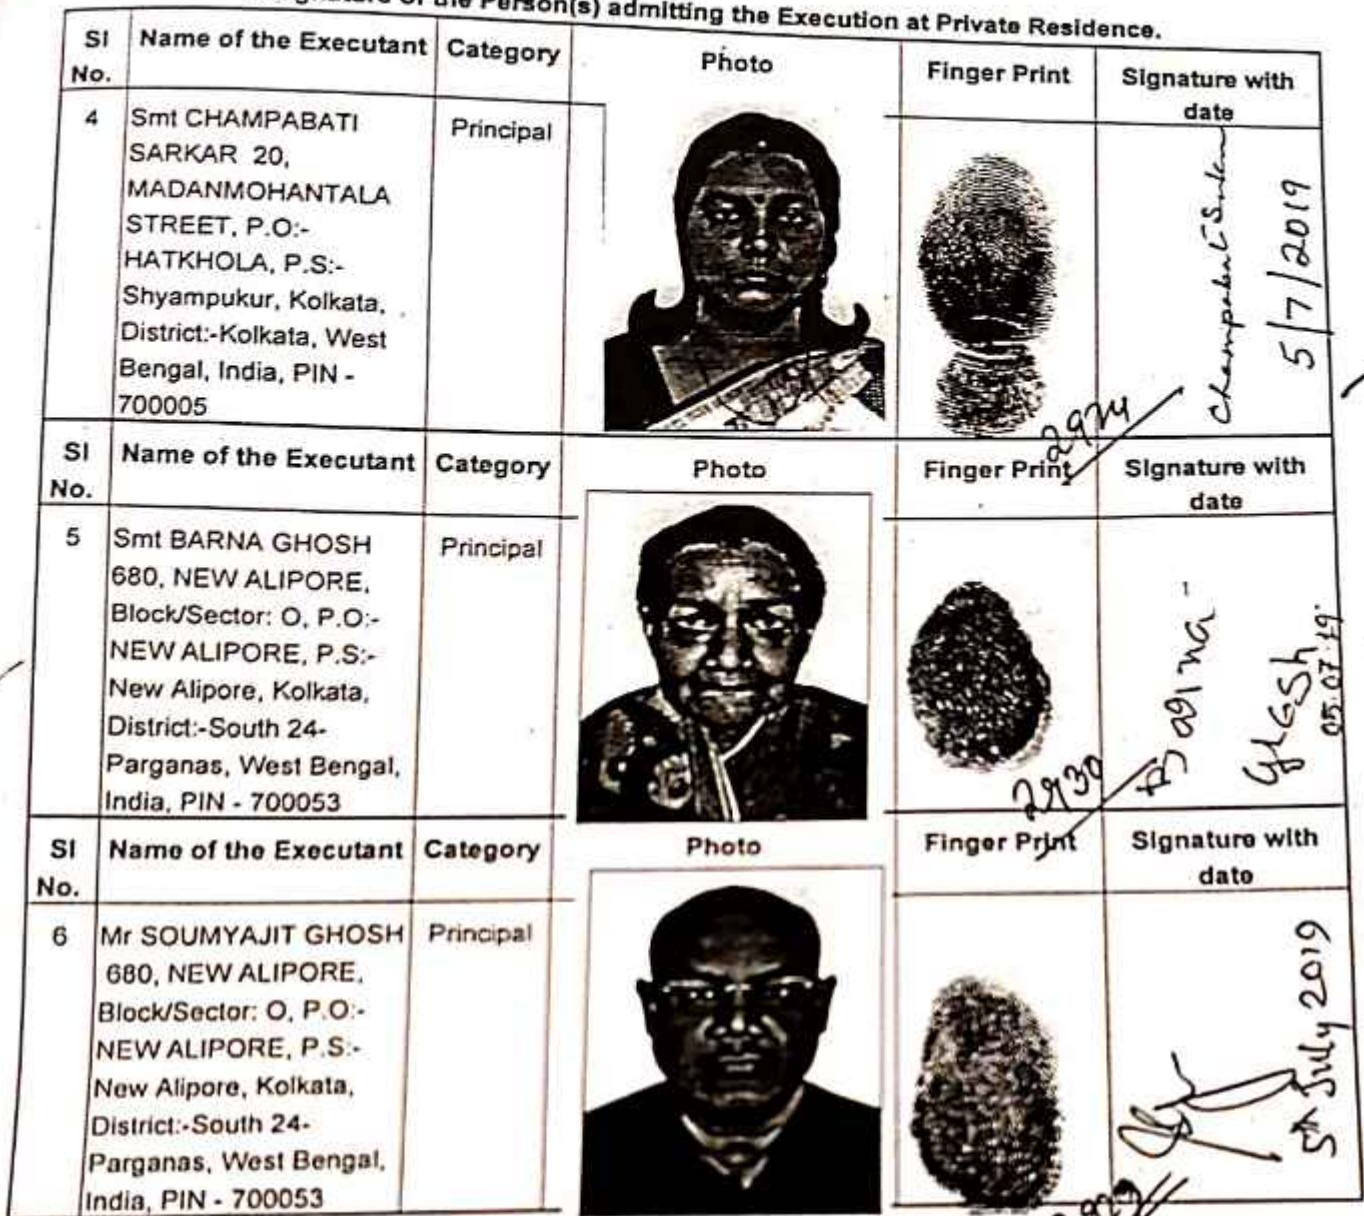 of the Person(s) admitting the Execution at Private Residence.
SI No. Name of the Executant Category Photo Finger Print Signature with date
4 Smt CHAMPABATI Principal
SARKAR 20,
MADANMOHANTALA
STREET, P.O:-
HATKHOLA, P.S:-
Shyampukur, Kolkata,
District:-Kolkata, West
Bengal, India, PIN -
700005
Champabati Sarkar
5/7/2019
2924
SI No. Name of the Executant Category Photo Finger Print Signature with date
5 Smt BARNA GHOSH Principal
680, NEW ALIPORE,
Block/Sector: O, P.O:-
NEW ALIPORE, P.S:-
New Alipore, Kolkata,
District:-South 24-
Parganas, West Bengal,
India, PIN - 700053
Barna
Ghosh
05.07.19
2930
SI No. Name of the Executant Category Photo Finger Print Signature with date
6 Mr SOUMYAJIT GHOSH Principal
680, NEW ALIPORE,
Block/Sector: O, P.O:-
NEW ALIPORE, P.S:-
New Alipore, Kolkata,
District:-South 24-
Parganas, West Bengal,
India, PIN - 700053
5th July 2019